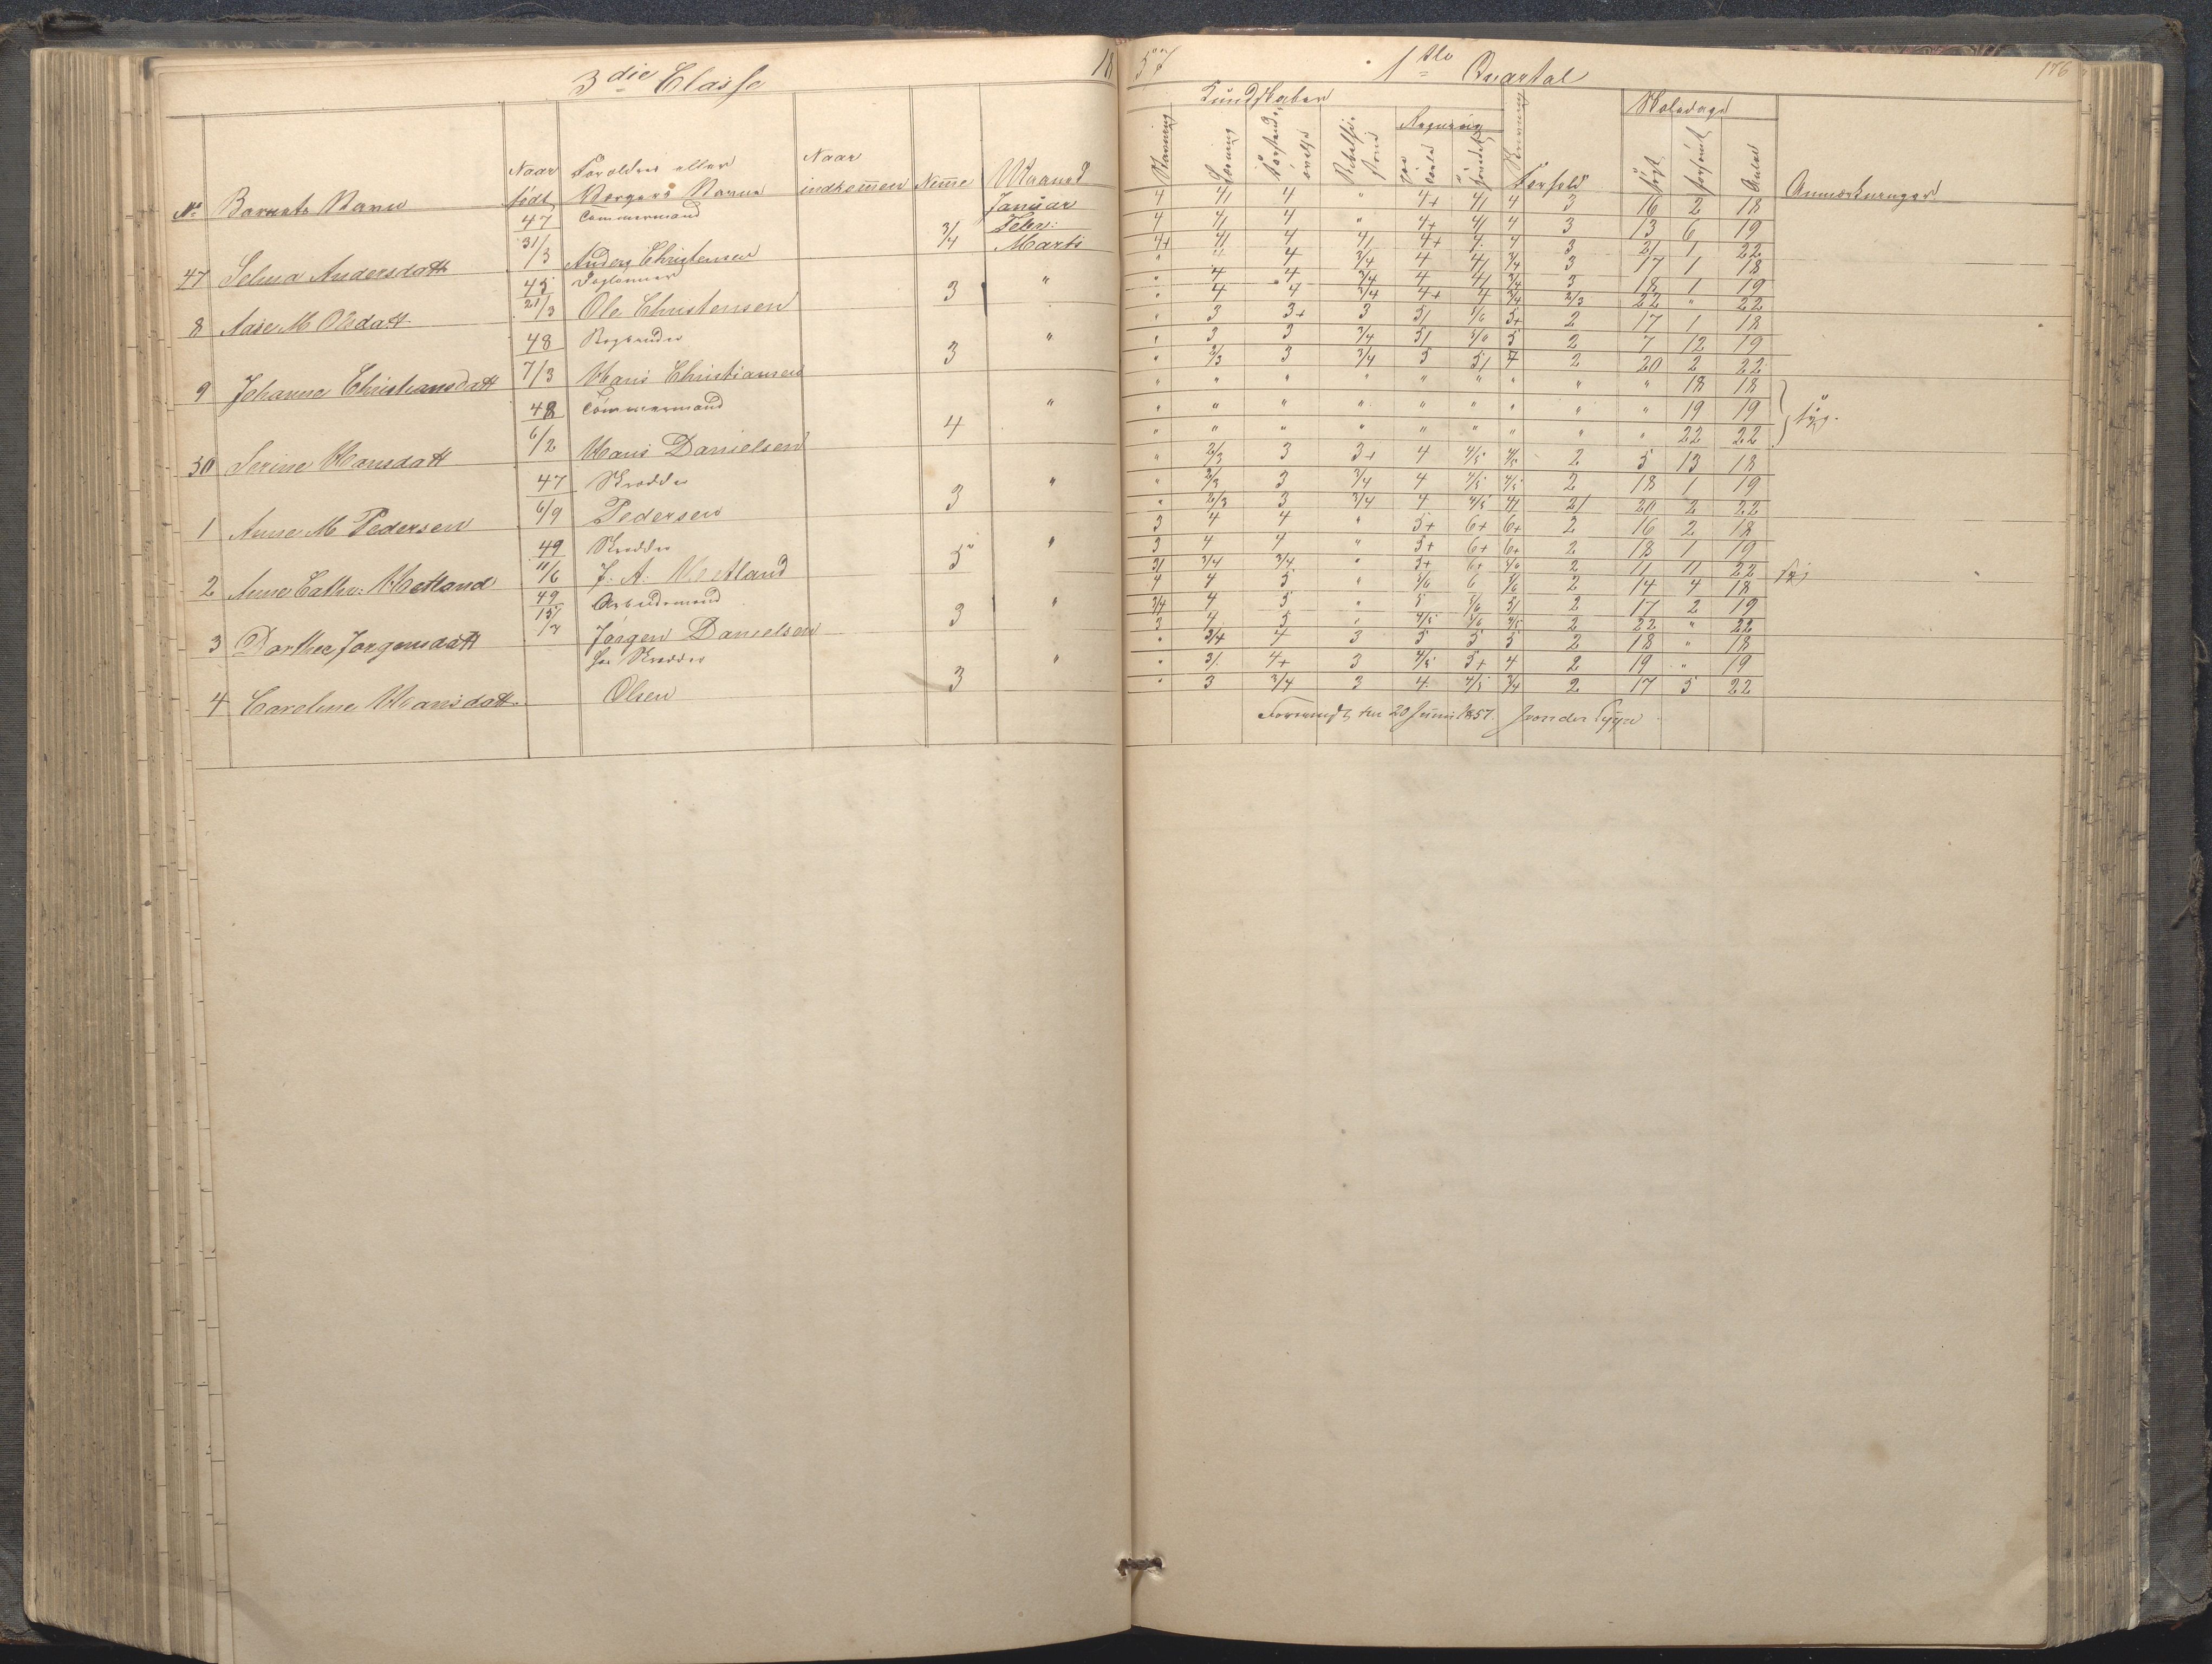 3die Classe 18
No Barnets Navn Naar født Forældres eller Værgers Navne Naar indkommen Nemme Maaned
47 Selma Andersdatt 47 31/3 Tømmermand Anders Christensen 3/4 Januar
Febr:
Marts
8 Aase M Olsdatt 45 21/3 Dagleiner Ole Christensen 3 "
9 Johanne Christiansdatt 48 7/3 Hans Christiansen 3 "
50 Serine Hansdatt 48 6/2 Tømmermand Hans Danielsen 4 "
1 Anne M Pedersen 47 6/9 Skrædder Pedersen 3 "
2 Anne Cathr: Hetland 49 11/6 Skrædder J: A: Hetland 3 "
3 Dorthea Jørgensdatt 49 15/3 Arbeidsmand Jørgen Danielsen 3 "
4 Caroline Hansdatt Skrædder Olsen 3 "
57 1ste Quartal 176
Kundskaber Skoledage
Regning
Stavning Læsning Forstands øvelse Bibelhi- storie Skrivning Forhold søgt forsømt Antal Anmærkninger
4 4/ 4 " 4+ 4/ 4 3 16 2 18
4 4/ 4 " 4+ 4/ 4 3 13 6 19
4+ 4/ 4 4/ 4+ 4 4 3 21 1 22
" " 4 3/4 4 4/ 3/4 3 17 1 18
" 4 4 3/4 4 4/ 3/4 3 18 1 19
" 4 4 3/4 4+ 4 3/4 2/3 22 " 22
" 3 3+ 3 5/ 5/6 5+ 2 17 1 18
" 3 3 3/4 5/ 5/6 5 2 7 12 19
" 2/3 3 3/4 5 5/ 7 2 20 2 22
" " " " " " " " " 18 18
" " " " " " " " " 19 19 syg.
" " " " " " " " " 22 22
" 2/3 3 3+ 4 4/5 4/5 2 5 13 18
" 2/3 3 3/4 4 4/5 4/5 2 18 1 19
" 2/3 3 3/4 4 4/5 4/ 2/ 20 2 22
3 4 4 " 5+ 6+ 6+ 2 16 2 18
3 4 4 " 5+ 6+ 6+ 2 18 1 19
3/ 3/4 3/4 " 5+ 6+ 5/6 2 11 11 22 syg
4 4 5 " 5/6 6 5/6 2 14 4 18
3/4 4 5 " 5 5/6 5/ 2 17 2 19
3 4 5 " 4/5 5/6 4/5 2 22 " 22
" 3/4 4 3 5 5 5 2 18 " 18
" 3/ 4+ 3 4/5 5+ 4 2 19 " 19
" 3 3/4 3 4 4/5 3/4 2 17 5 22
Foreviist den 20 Juni 1857.